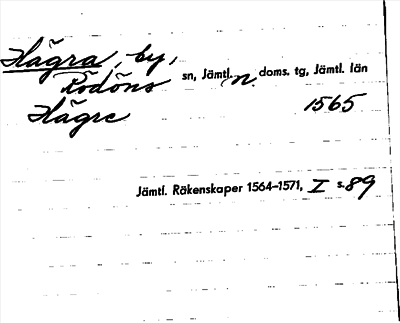 Hägra, by,
Rödöns sn, Jämtl. n. doms. tg, Jämtl. län
Hägre 1565
Jämtl. Räkenskaper 1564–1571, I s. 89